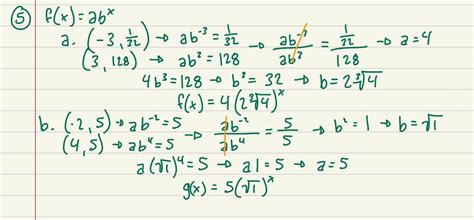 ⑤ f(x) = ab^x
a. (-3, 1/32) → ab^-3 = 1/32 → ab^-3/ab^3 = (1/32)/128 → a = 4
(3, 128) → ab^3 = 128
4b^3 = 128 → b^3 = 32 → b = 2∛4
f(x) = 4(2∛4)^x
b. (-2, 5) → ab^-2 = 5 → ab^-2/ab^4 = 5/5 → b^2 = 1 → b = √1
(4, 5) → ab^4 = 5
a(√1)^4 = 5 → a1 = 5 → a = 5
g(x) = 5(√1)^x